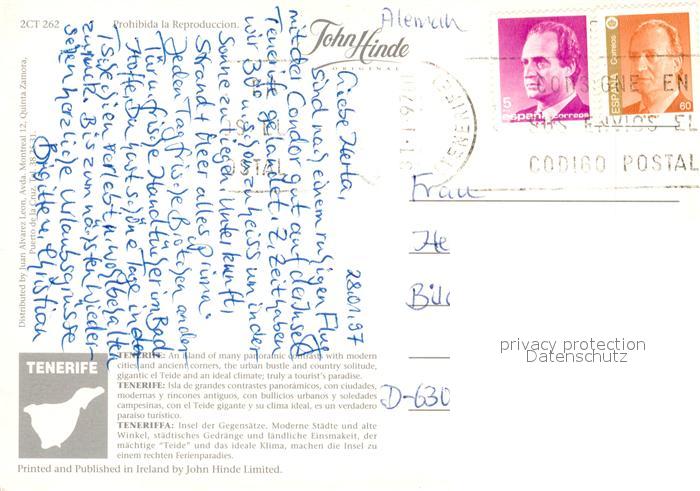 2CT 262
Prohibida la Reproduccion.
John Hinde
ORIGINAL
Distributed by Juan Alvarez Leon, Avda. Montreal 12, Quinta Zamora,
Puerto de la Cruz. Tel. 38 26 31.
28.01.97
Liebe Herta,
sind nach einem ruhigen Flug
mit der Condor gut auf der Insel
Teneriffa gelandet. Z. Zeit haben
wir 30° u. ist zu heiss um in der
Sonne zu liegen. Unterkunft,
Strand + Meer alles prima.
Jeden Tag frische Biotosen an der
Tür u. frische Handtücher im Bad
Hoffe Du hast schöne Tage in der
Tschechien verlebt u. wohlbehalten
zurück. Bis zum nächsten Wieder-
sehen herzliche Urlaubsgrüsse
Brigitte u. Christian
Alemania
5
españa correos
ESPAÑA Correos
60
CONSIGNE EN
SUS ENVIOS EL
CODIGO POSTAL
TENERIFE
Frau
He
Bil
D-630
privacy protection
Datenschutz
TENERIFE
TENERIFE: An island of many panoramic contrasts with modern
cities and ancient corners, the urban bustle and country solitude,
gigantic el Teide and an ideal climate; truly a tourist's paradise.
TENERIFE: Isla de grandes contrastes panorámicos, con ciudades,
modernas y rincones antiguos, con bullicios urbanos y soledades
campesinas, con el Teide gigante y su clima ideal, es un verdadero
paraiso turistico.
TENERIFFA: Insel der Gegensätze. Moderne Städte und alte
Winkel, städtisches Gedränge und ländliche Einsmakeit, der
mächtige "Teide" und das ideale Klima, machen die Insel zu
einem rechten Ferienparadies.
Printed and Published in Ireland by John Hinde Limited.